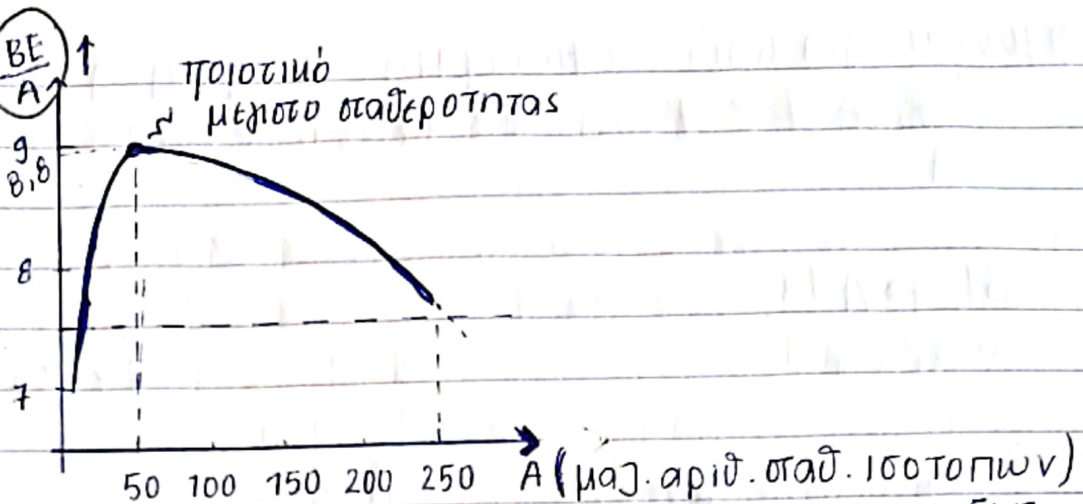 BE
A
ποιοτικό
μέγιστο σταθερότητας
9
8,8
8
7
50 100 150 200 250 A (μαζ. αριθ. σταθ. ισοτοπων)